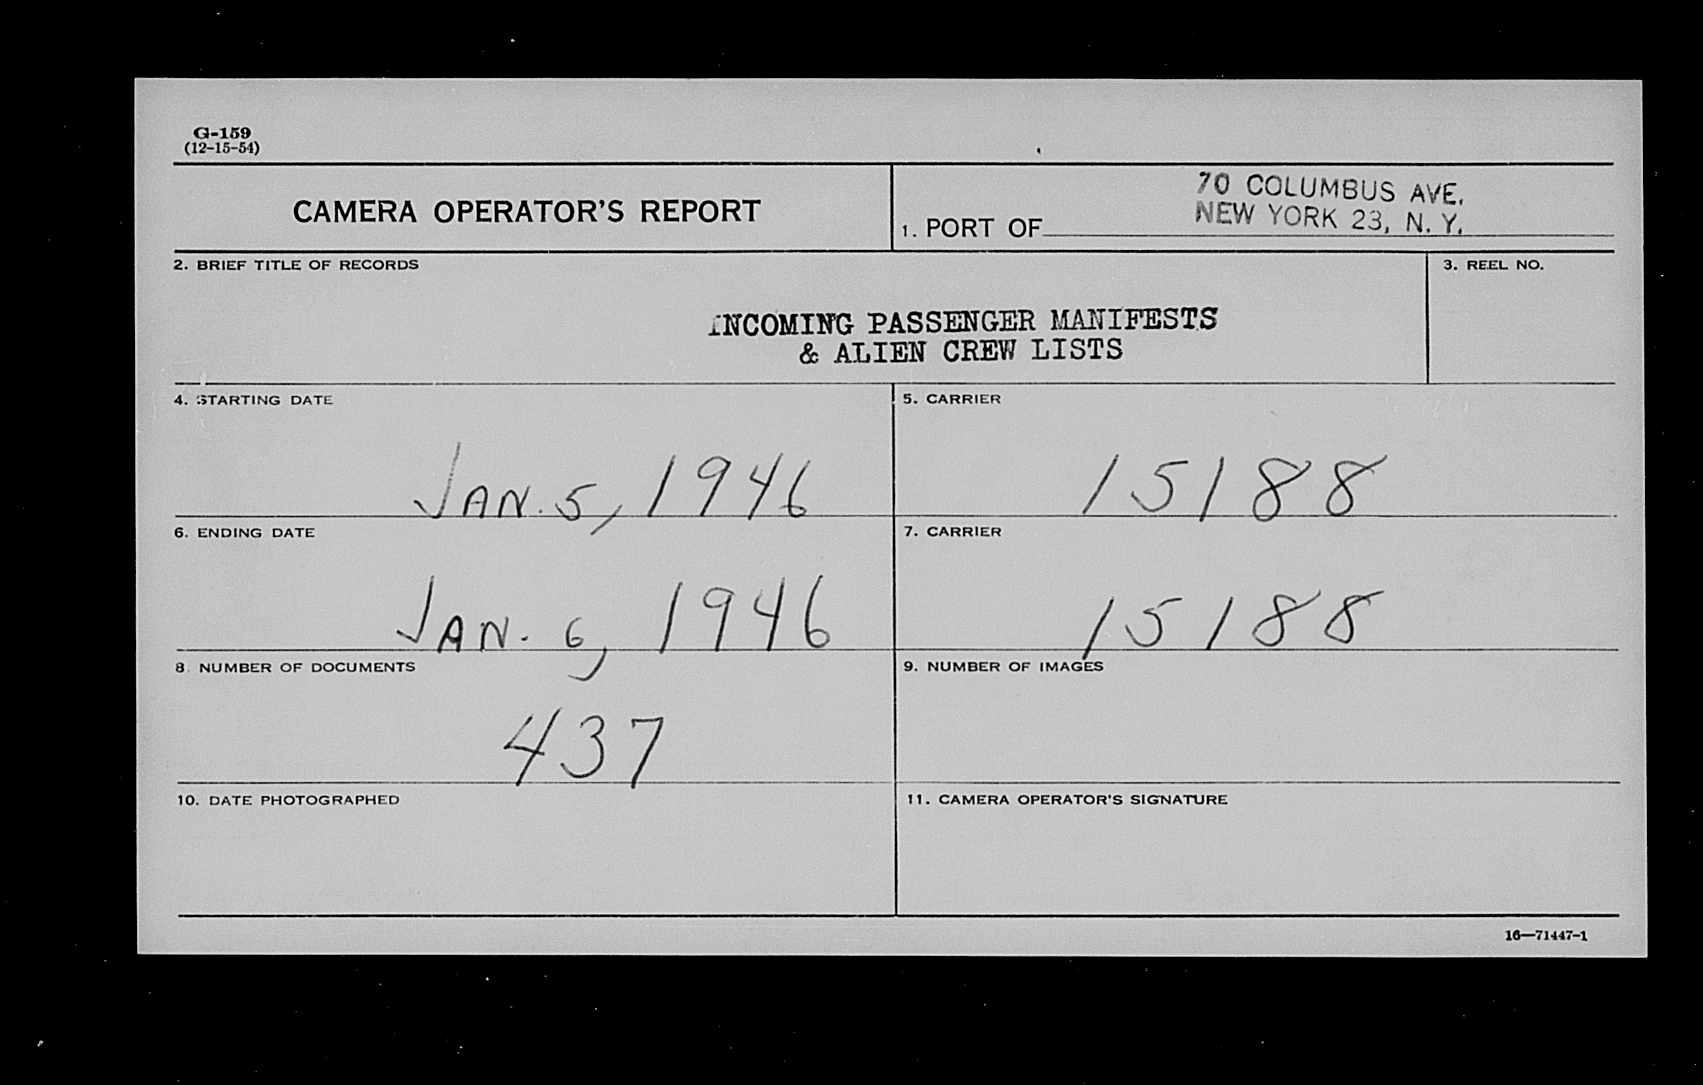 G-159
(12-15-54)
CAMERA OPERATOR'S REPORT
1. PORT OF
70 COLUMBUS AVE.
NEW YORK 23, N. Y.
2. BRIEF TITLE OF RECORDS
3. REEL NO.
INCOMING PASSENGER MANIFESTS
& ALIEN CREW LISTS
4. STARTING DATE
5. CARRIER
JAN. 5, 1946
15188
6. ENDING DATE
7. CARRIER
JAN. 6, 1946
15188
8. NUMBER OF DOCUMENTS
9. NUMBER OF IMAGES
437
10. DATE PHOTOGRAPHED
11. CAMERA OPERATOR'S SIGNATURE
16—71447-1